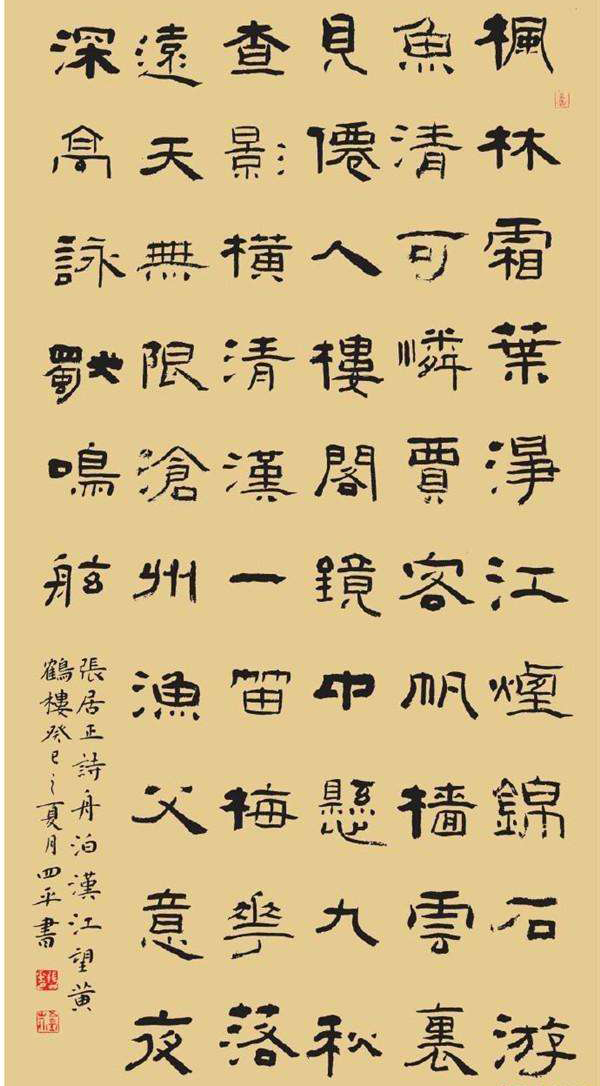 楓林霜葉淨江煙錦石游
魚清可憐賈客帆檣雲裏
見僊人樓閣鏡中懸九秋
查影橫清漢一笛梅華落
遠天無限滄州漁父意夜
深高詠獨鳴舷
張居正詩舟泊漢江望黃
鶴樓癸巳之夏月四平書